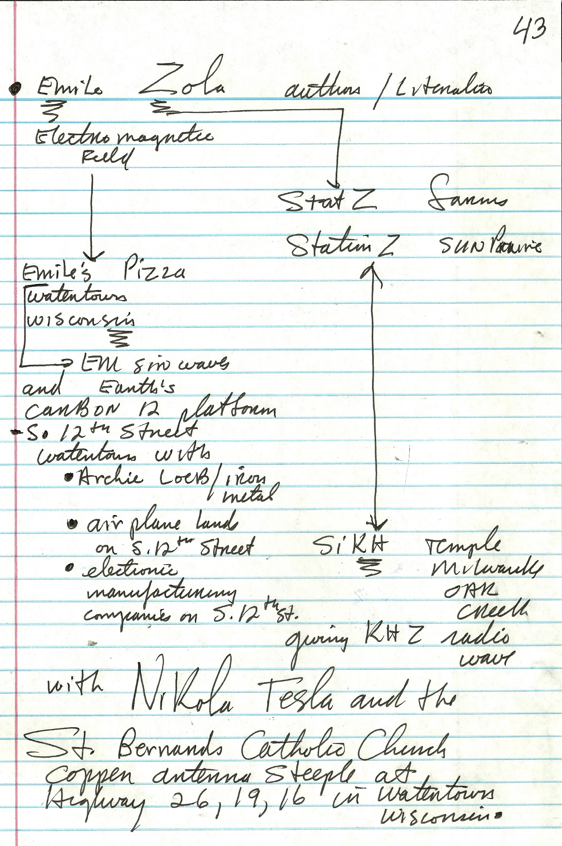 43
• Emile Zola authors / Literature
Electromagnetic
Field
StatZ Farms
Station Z SUN Prairie
Emile's Pizza
Watertown
Wisconsin
EM sin waves
and Earth's
CARBON 12 platform
- So. 12th Street
Watertown with
• Archie LoEB/iron
metal
• airplane lands
on S. 12th Street
• electronic
manufacturing
companies on S. 12th St.
SiKH Temple
Milwaukee
OAK
CREEK
giving KHZ radio
wave
with Nikola Tesla and the
St. Bernards Catholic Church
copper antenna steeple at
Highway 26, 19, 16 in Watertown
Wisconsin.